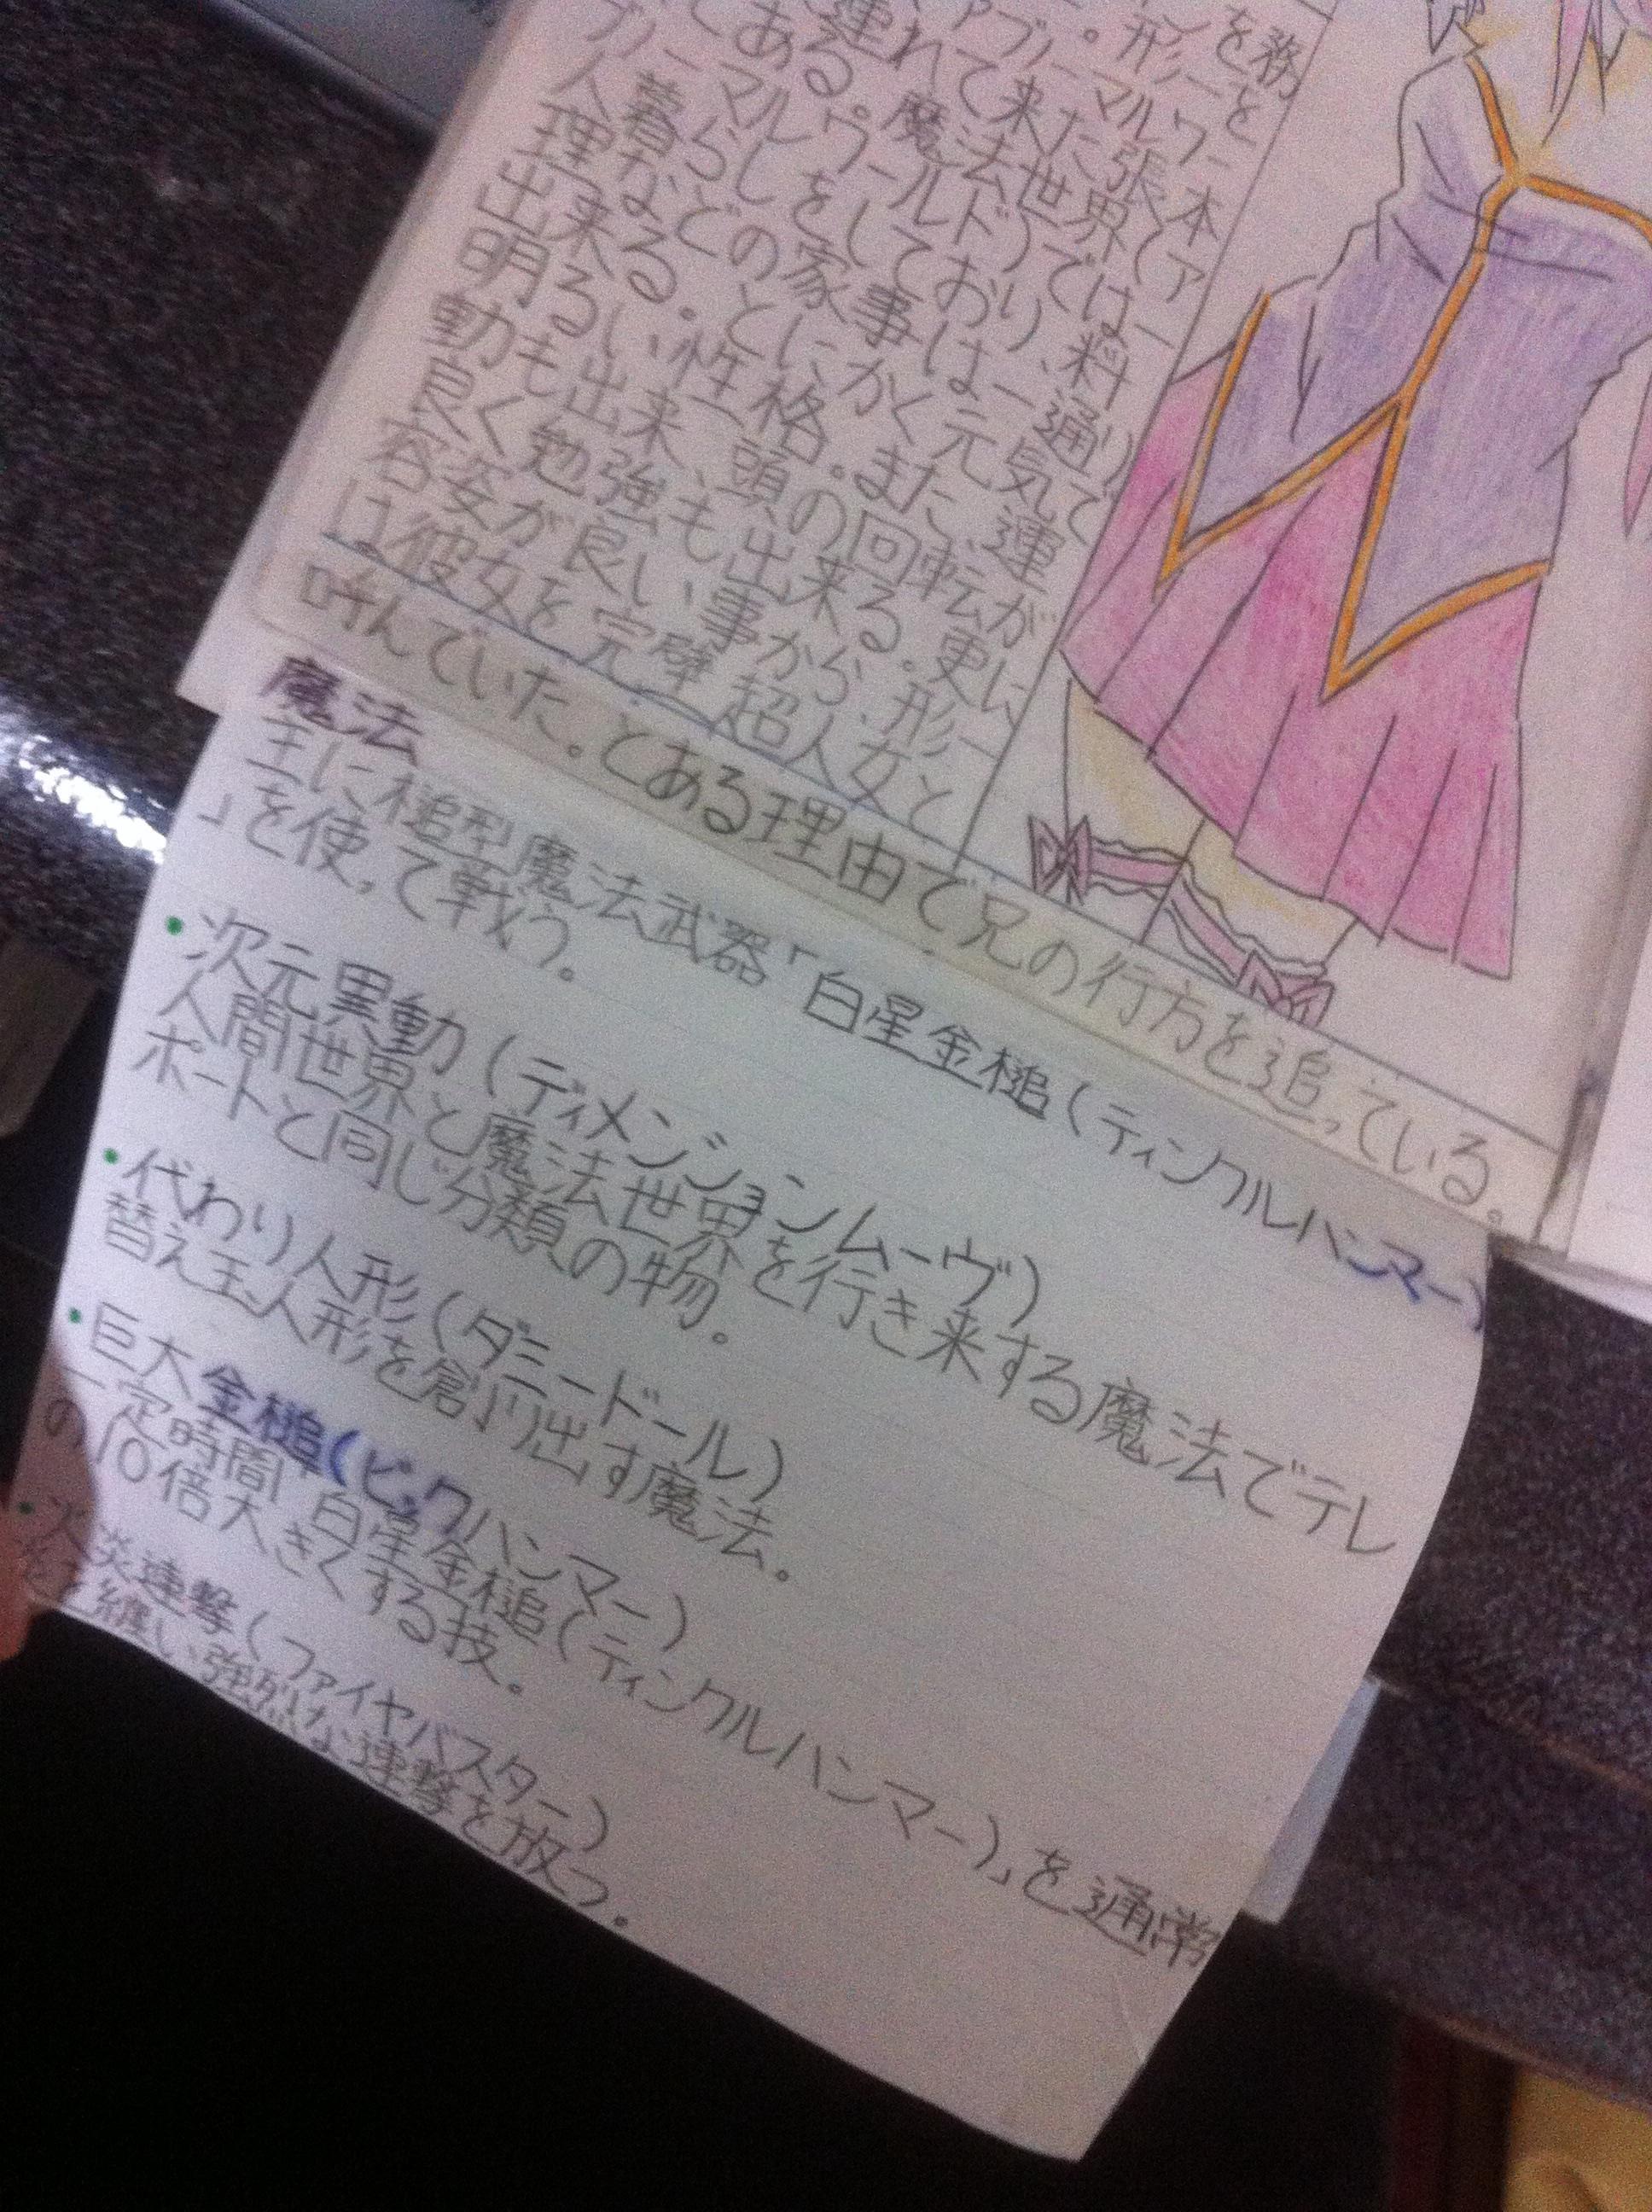 を務
ン。形一と
ァブノーマルワー本
連れて来た張(ア
である。魔法世界は
ブノーマルワールド)では一
人暮らしをしており、料
理などの家事は一通りで
出来る。とにかく元気で
明るい性格。また、運
動も出来、頭の回転が
良く勉強も出来る。更に
容姿が良い事から、形一
は彼女を完璧超人女と
呼んでいた。とある理由で兄の行方を追っている。
魔法
主に槌型魔法武器「白星金槌(ティンクルハンマー)
」を使って戦う。
・次元異動(ディメンションムーヴ)
人間世界と魔法世界を行き来する魔法でテレ
ポートと同じ分類の物。
・代わり人形(ダミードール)
替え玉人形を創り出す魔法。
・巨大金槌(ビッグハンマー)
一定時間「白星金槌(ティンクルハンマー)」を通常
の10倍大きくする技。
・火炎連撃(ファイヤバスター)
纏い強烈な連撃を放つ。